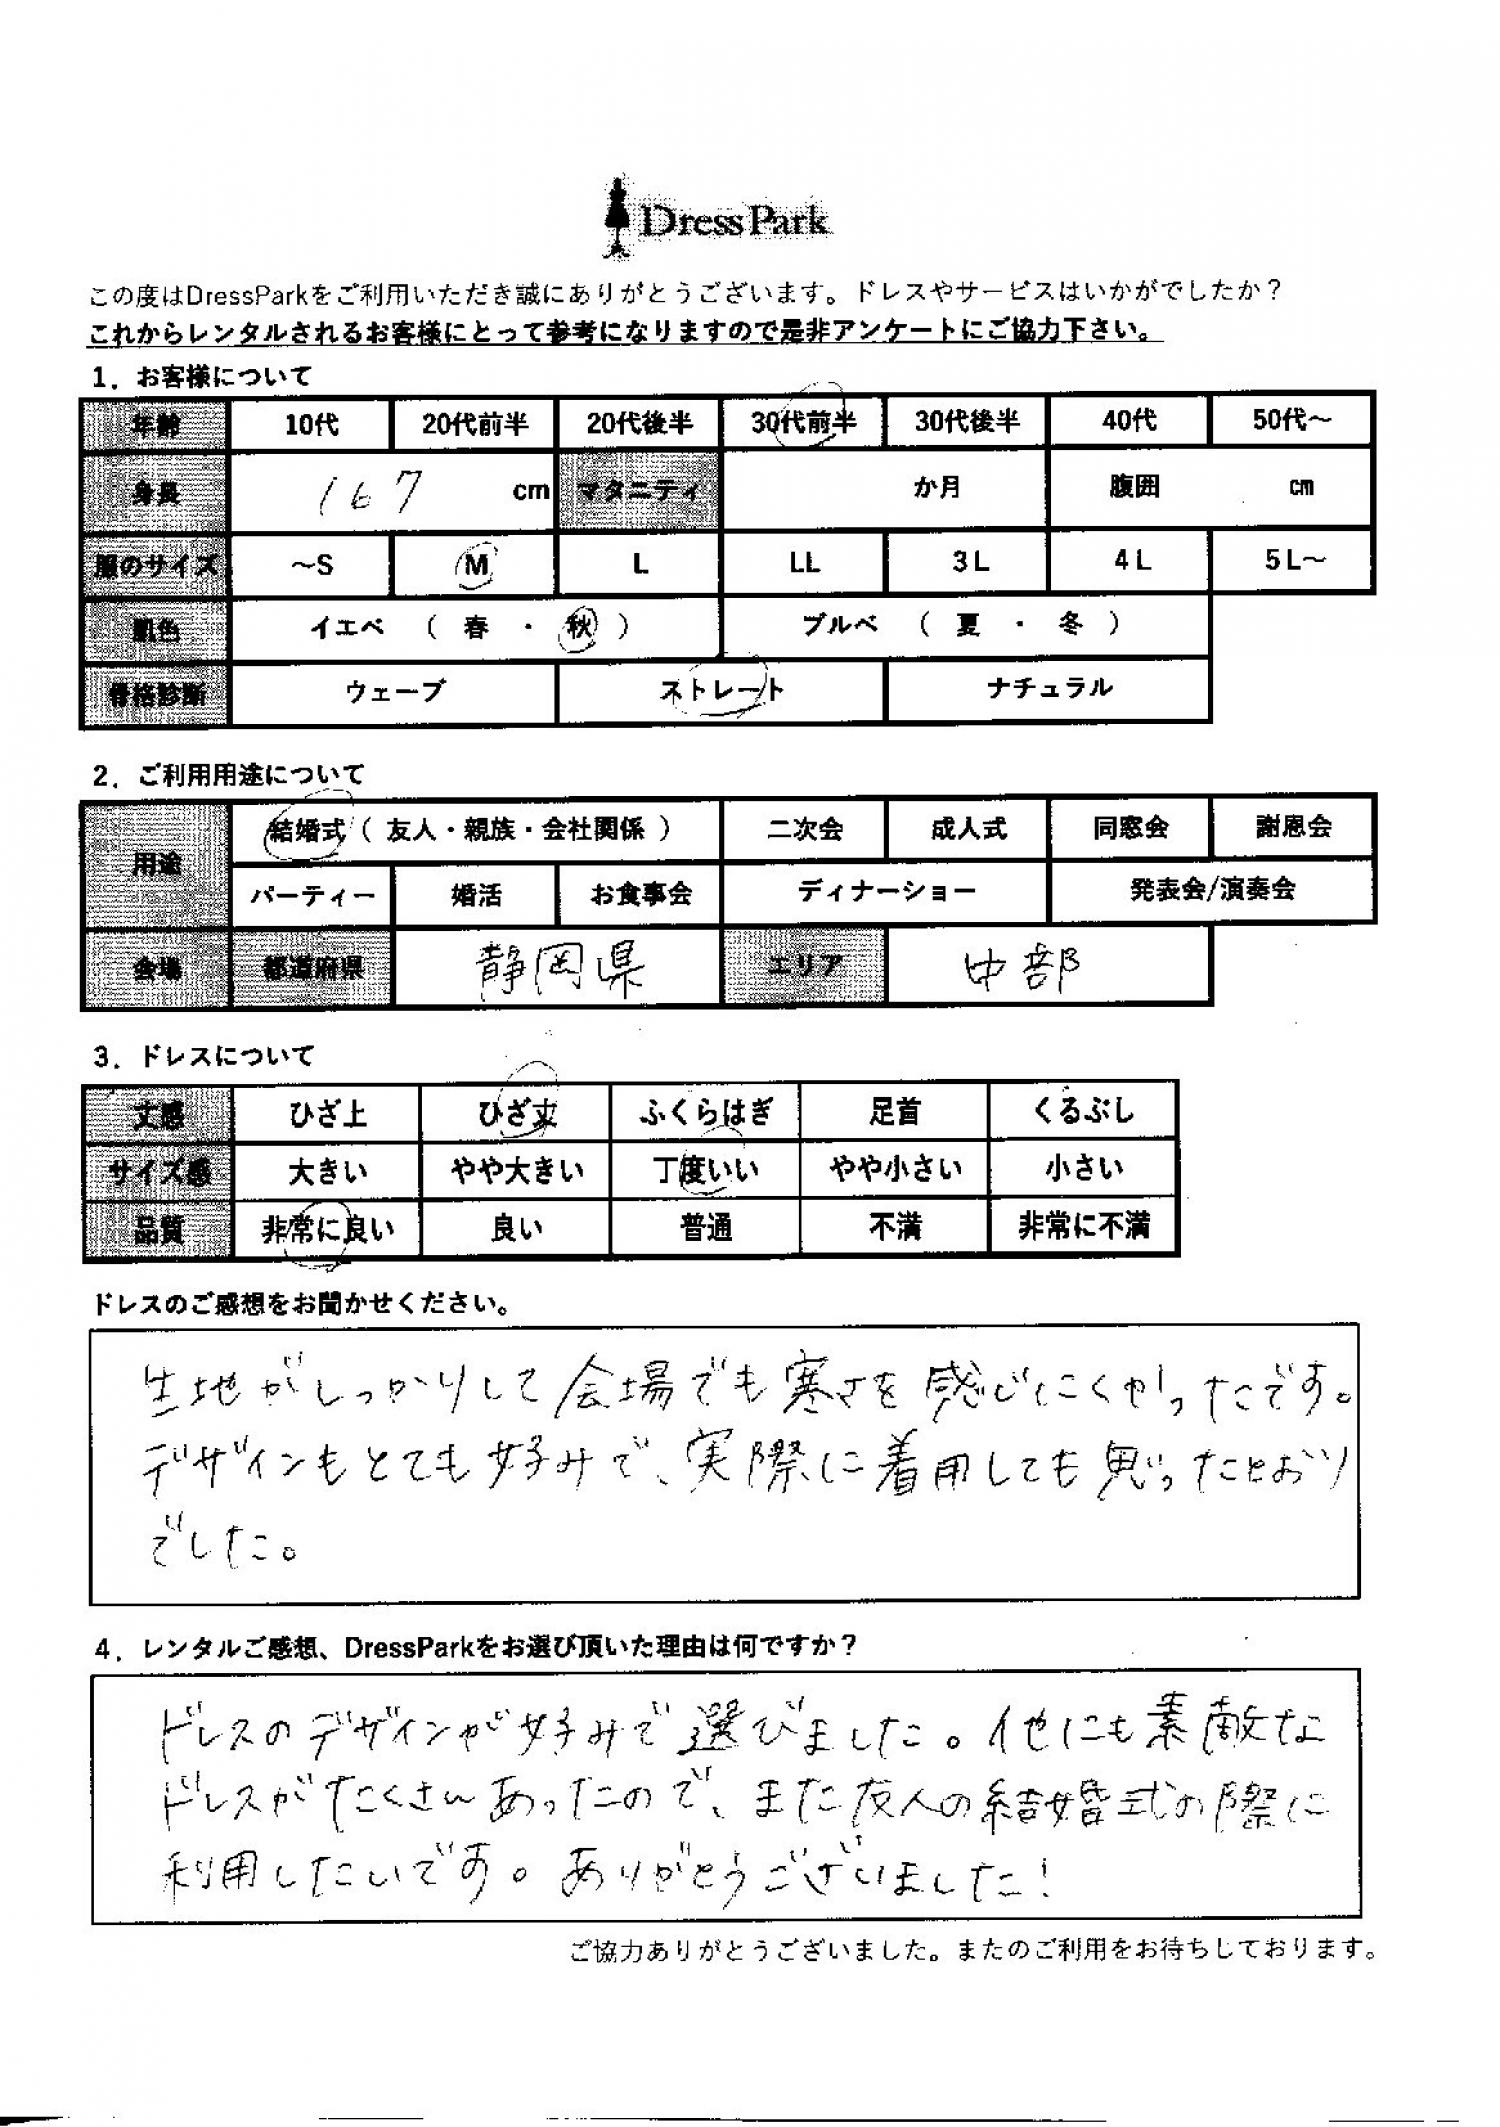 DressPark
この度はDressParkをご利用いただき誠にありがとうございます。ドレスやサービスはいかがでしたか？
これからレンタルされるお客様にとって参考になりますので是非アンケートにご協力下さい。
1．お客様について
年齢 10代 20代前半 20代後半 30代前半 30代後半 40代 50代～
身長 167 cm マタニティ か月 腹囲 cm
服のサイズ ～S M L LL 3L 4L 5L～
肌色 イエベ （ 春 ・ 秋 ） ブルベ （ 夏 ・ 冬 ）
骨格診断 ウェーブ ストレート ナチュラル
2．ご利用用途について
用途 結婚式（ 友人・親族・会社関係 ） 二次会 成人式 同窓会 謝恩会
パーティー 婚活 お食事会 ディナーショー 発表会/演奏会
会場 都道府県 静岡県 エリア 中部
3．ドレスについて
丈感 ひざ上 ひざ丈 ふくらはぎ 足首 くるぶし
サイズ感 大きい やや大きい 丁度いい やや小さい 小さい
品質 非常に良い 良い 普通 不満 非常に不満
ドレスのご感想をお聞かせください。
生地がしっかりして会場でも寒さを感じにくかったです。
デザインもとても好みで、実際に着用しても思ったとおり
でした。
4．レンタルご感想、DressParkをお選び頂いた理由は何ですか？
ドレスのデザインが好みで選びました。他にも素敵な
ドレスがたくさんあったので、また友人の結婚式の際に
利用したいです。ありがとうございました！
ご協力ありがとうございました。またのご利用をお待ちしております。